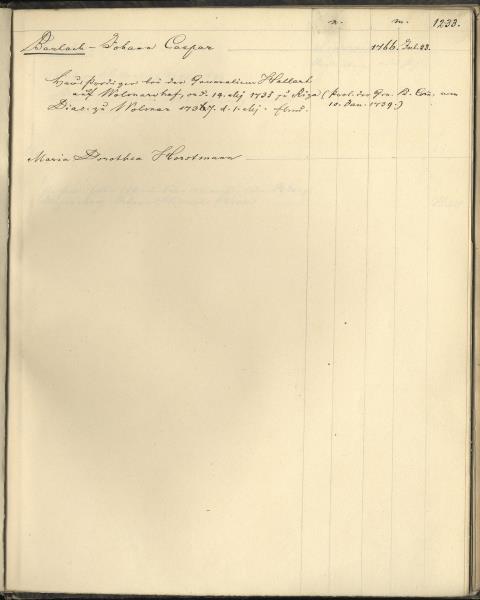 n. m. 1233.
Barlach - Johann Caspar 1766. Feb. 23.
Hausprediger bei der Generalin Hallart
auf Wolmarshof, ord. 14. Sept. 1735 zu Riga (Prot. des Gen. B. Con. vom
Diac. zu Wolmar 1736/7. d. 1. 10. Jan. 1739.)
Maria Dorothea Horstmann